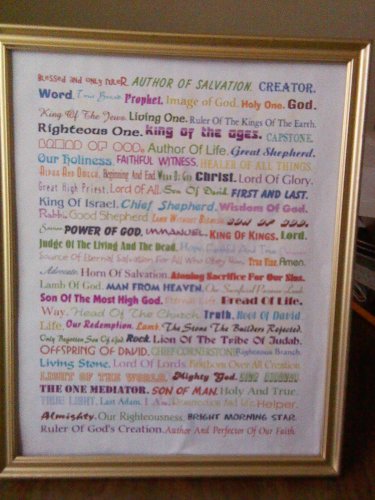 Blessed and Only Ruler. Author of Salvation. Creator.
Word. True Bread. Prophet. Image of God. Holy One. God.
King Of The Jews. Living One. Ruler Of The Kings Of The Earth.
Righteous One. King of the ages. Capstone.
Author Of Life. Great Shepherd.
Our Holiness. Faithful Witness. Healer Of All Things.
Beginning And End. Christ. Lord Of Glory.
Great High Priest. Lord Of All. Son Of David. First and Last.
King Of Israel. Chief Shepherd. Wisdom Of God.
Rabbi. Good Shepherd. Son of God.
Savior. Power of God. Immanuel. King Of Kings. Lord.
Judge Of The Living And The Dead. Hope. Faithful And True
Source Of Eternal Salvation For All Who Obey Him. True Vine. Amen.
Advocate. Horn Of Salvation. Atoning Sacrifice For Our Sins.
Lamb Of God. Man From Heaven. Our Sacrificed Passover Lamb.
Son Of The Most High God. Eternal Life. Bread Of Life.
Way. Head Of The Church. Truth. Root Of David
Life. Our Redemption. Lamb. The Stone The Builders Rejected.
Only Begotten Son Of God. Rock. Lion Of The Tribe Of Judah.
Offspring Of David. Chief Cornerstone. Righteous Branch.
Living Stone. Lord Of Lords. Firstborn Over All Creation.
Light Of The World. Mighty God.
The One Mediator. Son Of Man. Holy And True.
True Light. Last Adam. I Am. Resurrection And Life. Helper.
Almighty. Our Righteousness. Bright Morning Star.
Ruler Of God's Creation. Author And Perfector Of Our Faith.